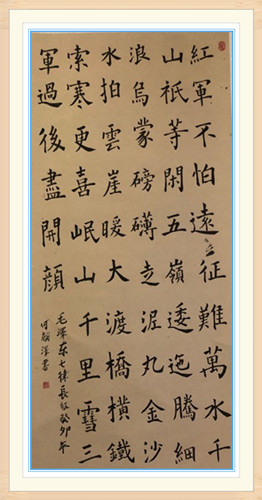 紅軍不怕遠征難萬水千
山祇等閑五嶺逶迤騰細
浪烏蒙磅礴走泥丸金沙
水拍雲崖暖大渡橋橫鐵
索寒更喜岷山千里雪三
軍過後盡開顏
毛澤东七律長征癸卯冬
書